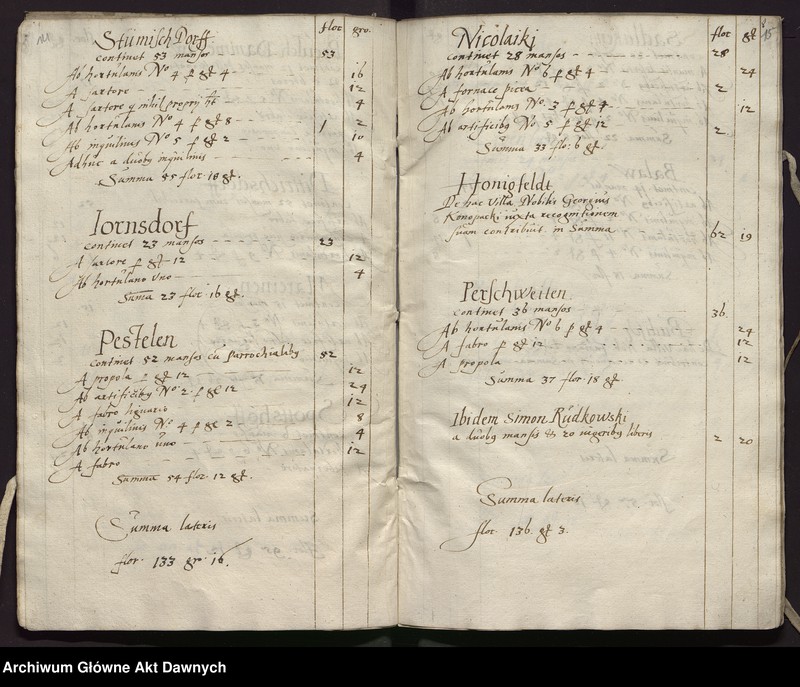 flor gro.
Stümisch Dorff
continet 53 mansos 53
Ab hortulanis No 4 p gl 4 16
A sartore 12
A sartore q nihil proprij ht 4
Ab hortulanis No 4 p gl 8 1 2
Ab inquilinis No 5 p gl 2 10
Adhuc a duobg inquilinis 4
Summa 55 flor 18 gl.
Jornsdorf
continet 23 mansos 23
A sartore p gl 12 12
Ab hortulano uno 4
Summa 23 flor 16 gl.
Pestelen
continet 52 mansos cu parrochialibg 52
A propola p gl 12 12
Ab artificibg No 2 p gl 12 24
A fabro lignario 12
Ab inquilinis No 4 p gl 2 8
Ab hortulano uno 4
A fabro 12
Summa 54 flor 12 gl.
Summa lateris
flor. 133 gro. 16.
15
flor gl
Nicolaiki
continet 28 mansos 28
Ab hortulanis No 6 p gl 4 24
A fornace picea 2
Ab hortulanis No. 3 p gl 4 12
Ab artificibg No 5 p gl 12 2
Summa 33 flo: 6 gl.
Honigfeldt
De hac villa Nobilis Georgius
Konopacki iuxta recognitionem
suam contribuit in Summa 62 19
Perschweiten
continet 36 mansos 36
Ab hortulanis No 6 p gl 4 24
A fabro p gl 12 12
A propola 12
Summa 37 flor 18 gl.
Ibidem Simon Rudkowski
a duobg mansis & 20 iugeribg liberis 2 20
Summa lateris
flor. 136 gl 3.
Archiwum Główne Akt Dawnych